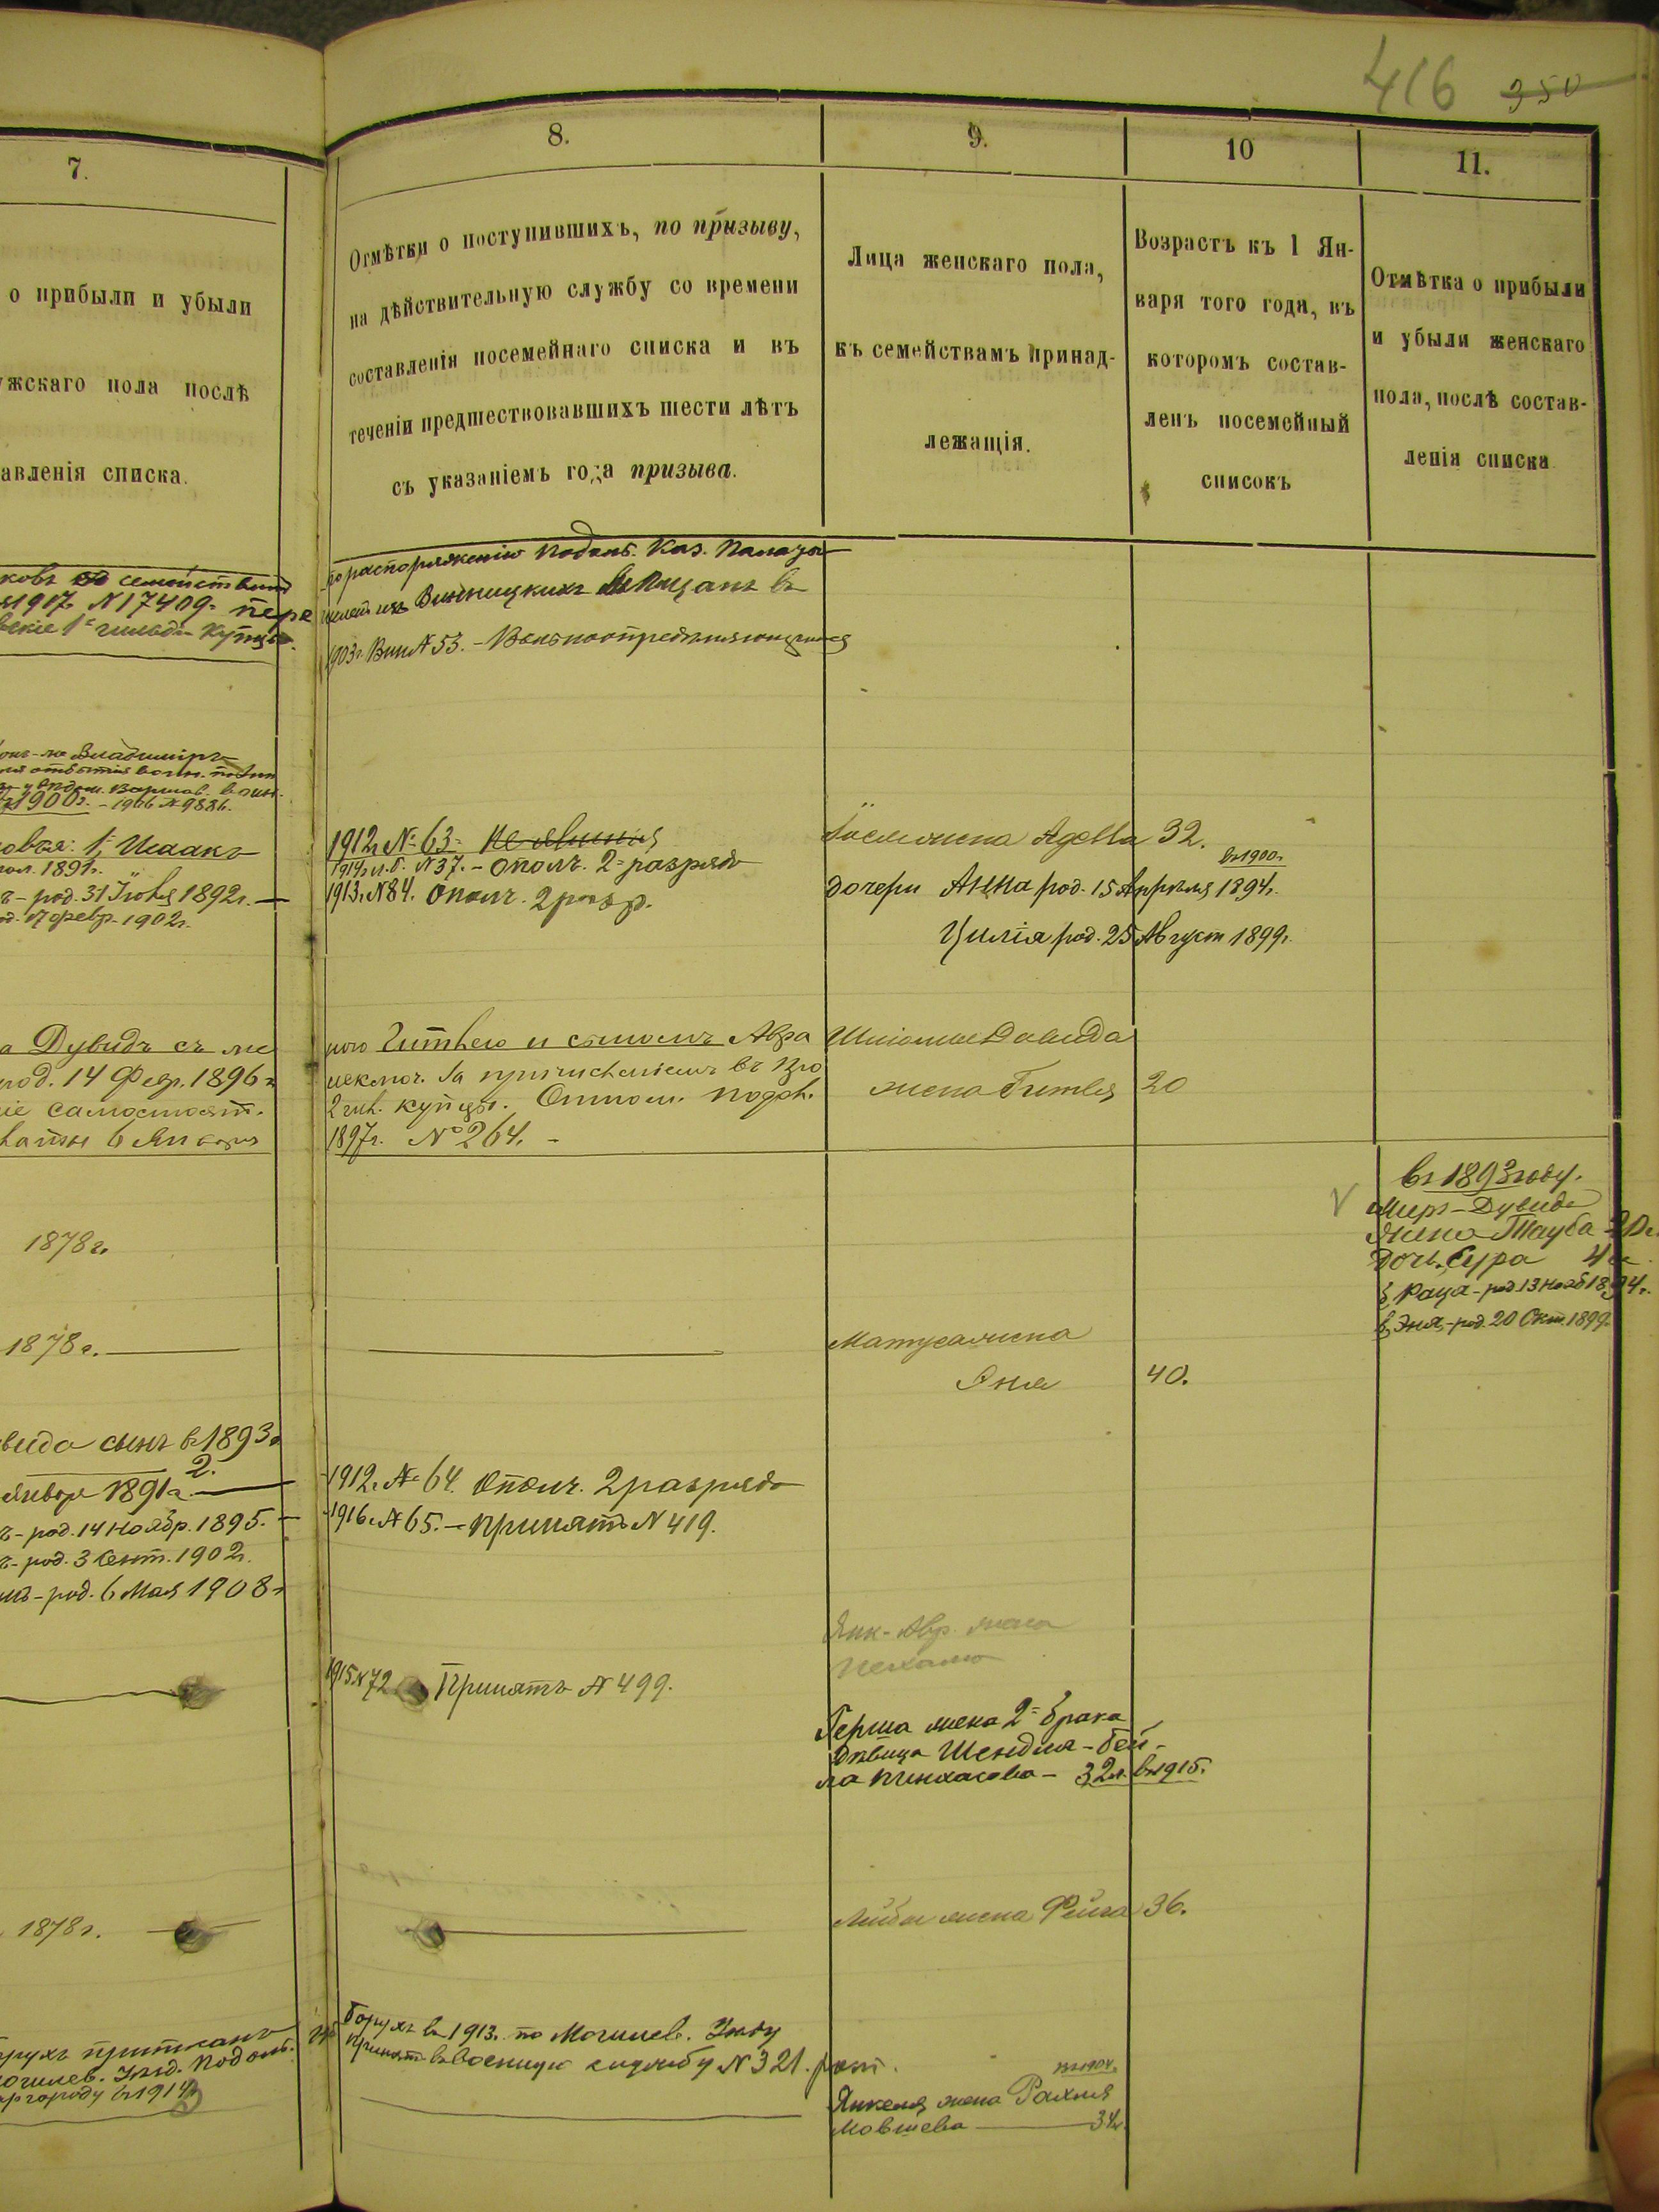 416 350
7.
8.
9.
10
11.
о прибыли и убыли
ужскаго пола послѣ
авленія списка.
Отмѣтки о поступившихъ, по призыву,
на дѣйствительную службу со времени
составленія посемейнаго списка и въ
теченіи предшествовавшихъ шести лѣтъ
съ указаніемъ года призыва.
Лица женскаго пола,
къ семействамъ принад-
лежащія.
Возрастъ къ 1 Ян-
варя того года, въ
которомъ состав-
ленъ посемейный
списокъ
Отмѣтка о прибыли
и убыли женскаго
пола, послѣ состав-
ленія списка.
ковъ со семействомъ
1917. N 17409. пере
1й гильд. купцы.
по распоряженію Подольс. Каз. Палаты
изъ Винницкихъ въ
1903г. Вин № 53. – Вольноопредѣляющимся
Владиміръ
1900г. – 1906 № 9886.
1, Исаакъ
1891г.
род. 31 Іюля 1892г. —
17 февр. 1902г.
1912г. № 63. Не явился
1914г. N 37. – Ополч. 2го разряда
1913г. N 84. Ополч. 2 разр.
жена Аделла 32.
въ 1900г.
дочери Анна род. 15 Апрѣля 1894г.
Цилія род. 25 Август 1899г.
а Дувидъ съ же
род. 14 Февр. 1896г.
самостоят.
6 Января
ною Гитлею и сыномъ Авра
исключ. за причисленіемъ въ
2 гил. купцы.
1897г. № 264. –
Давида
жена Гитля 20
въ 1893 году.
Мееръ-Дувида
жена Тауба
дочь. Сура 4
Раца – род. 13 Нояб 1894г.
Эня, – род. 20 Окт. 1899г.
1878г.
1878г.
Матуса жена
Эня 40.
вида сынъ въ 1893г.
2.
январ 1891г. —
ъ – род. 14 Ноябр. 1895. —
ъ – род. 3 Сент. 1902г.
род. 6 Мая 1908г.
1912г. № 64. Ополч. 2 разряда
1916г. № 65. – Принятъ N 419.
Янк-Авр. жена
Нехама
1915 N 72 Принятъ № 499.
Герша жена 2го брака
дѣвица Шендля-Бей-
ла Пинхасова – 32л. въ 1915.
1878г.
Лейбы жена Фейга 36.
рухъ приписанъ
Могилев. Уѣзд. Подол.
городу въ 1914г.
Борухъ въ 1913г. по Могилев. Уѣзду
принятъ въ военную службу N 321.
въ 1904.
Янкеля жена Рахля
Мовшева — 34л.